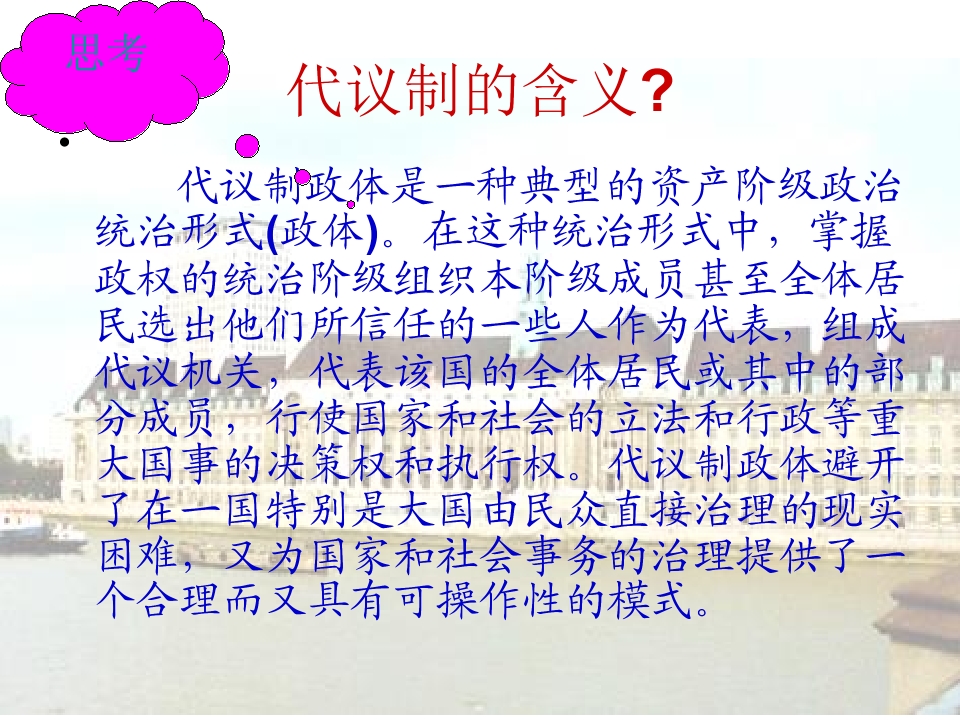 思考
代议制的含义?
代议制政体是一种典型的资产阶级政治
统治形式(政体)。在这种统治形式中，掌握
政权的统治阶级组织本阶级成员甚至全体居
民选出他们所信任的一些人作为代表，组成
代议机关，代表该国的全体居民或其中的部
分成员，行使国家和社会的立法和行政等重
大国事的决策权和执行权。代议制政体避开
了在一国特别是大国由民众直接治理的现实
困难，又为国家和社会事务的治理提供了一
个合理而又具有可操作性的模式。